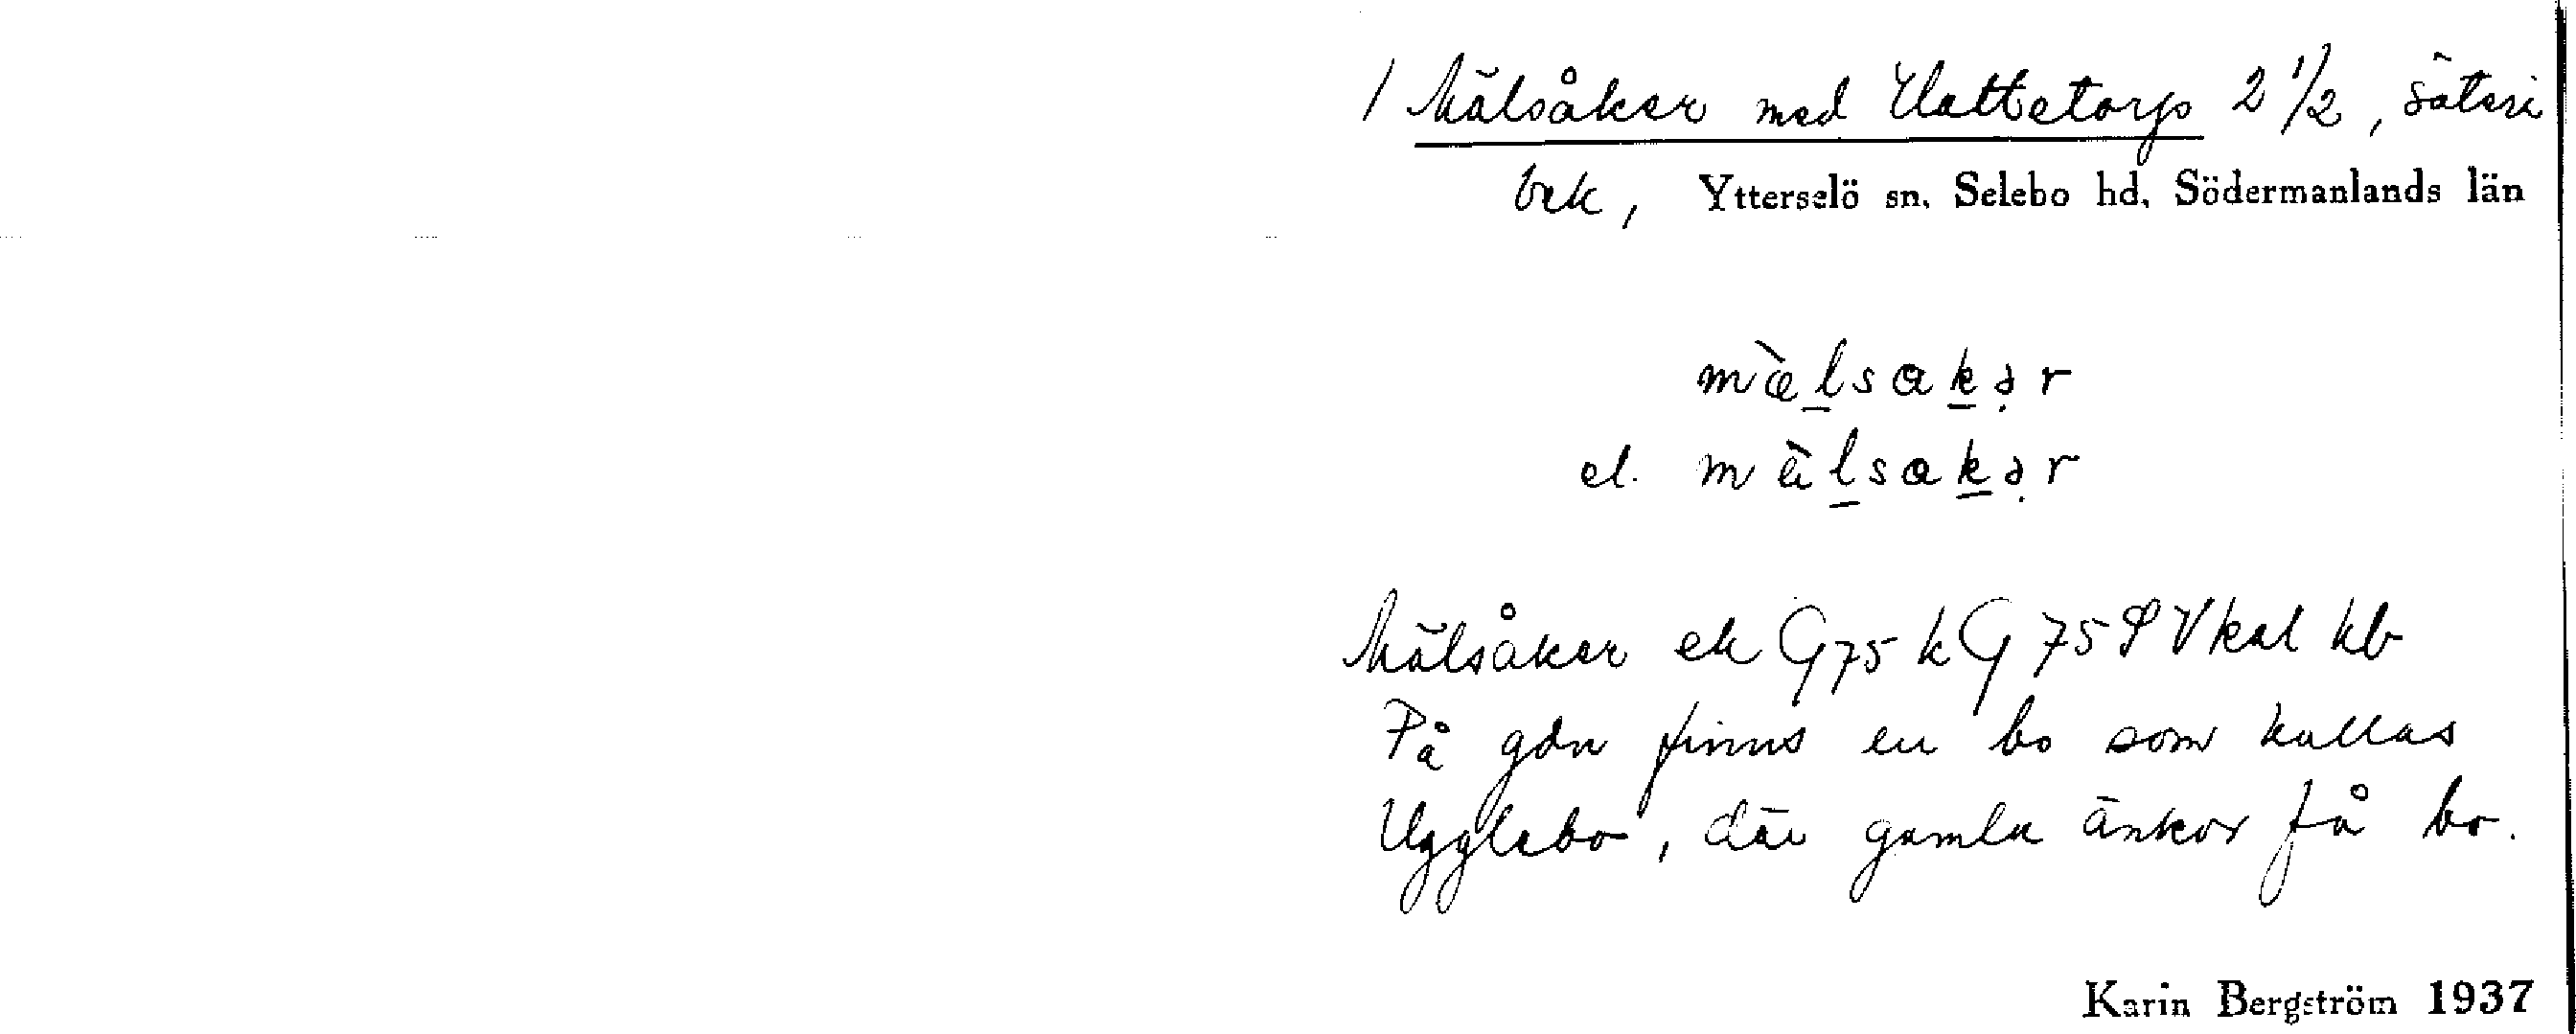 1 Mälsåker med Vattetorp 2 1/2, säteri
bek, Ytterselö sn. Selebo hd. Södermanlands län
mæ̀lsakər
el. mä̀lsakər
Mälsåker ek G75 k G 75 S V kal kb
På gdn finns en bo som kallas
Ugglebo, där gamla änkor få bo.
Karin Bergström 1937